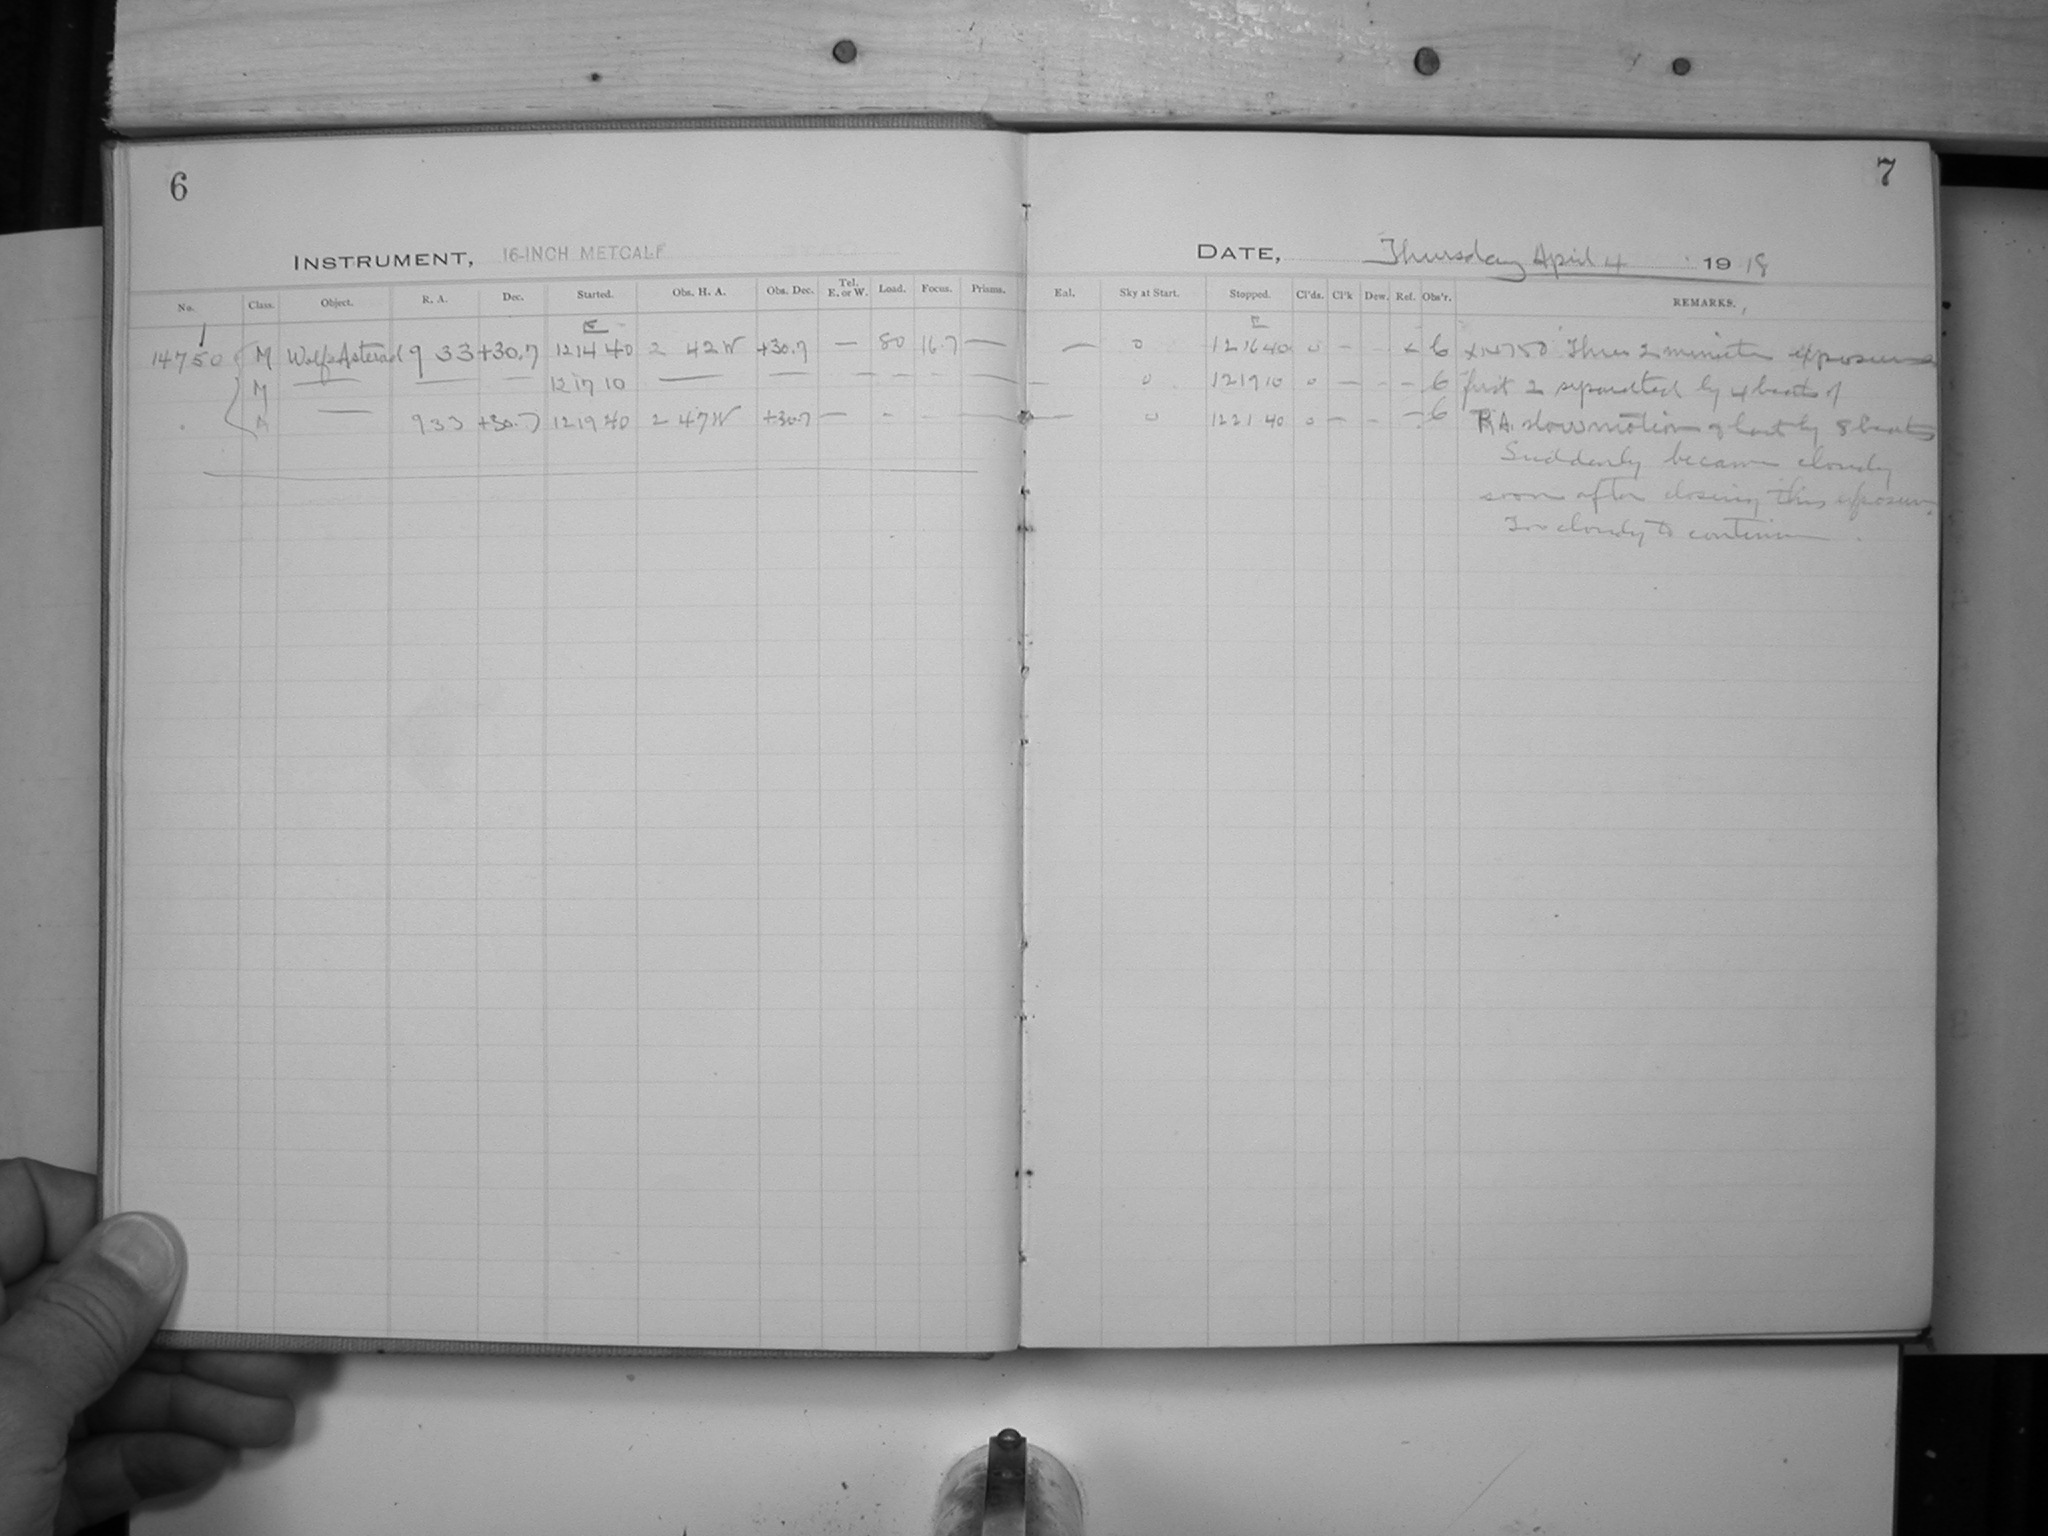 6
7
INSTRUMENT, 16-INCH METCALF
DATE, Thursday April 4 1918
No. Class. Object. R. A. Dec. Started. Obs. H. A. Obs. Dec. Tel. E. or W. Load. Focus. Prisms.
Eal. Sky at Start. Stopped. Cl'ds. Cl'k Dew. Ref. Obs'r. REMARKS.
E
E
14750 M Wolf's Asteroid 9 33 +30.7 12 14 40 2 42 W +30.7 — 80 16.7 —
— 0 12 16 40 0 - - x 6 x14750 Three 2 minute exposures
M — — — 12 17 10 — — — - - —
— 0 12 19 10 0 — - - 6 first 2 separated by 4 beats of
— 9 33 +30.7 12 19 40 2 47 W +30.7 — - - —
— 0 12 21 40 0 - - - 6 R.A. slow motion & last by 8 beats
Suddenly became cloudy
soon after closing this exposure.
Too cloudy to continue.